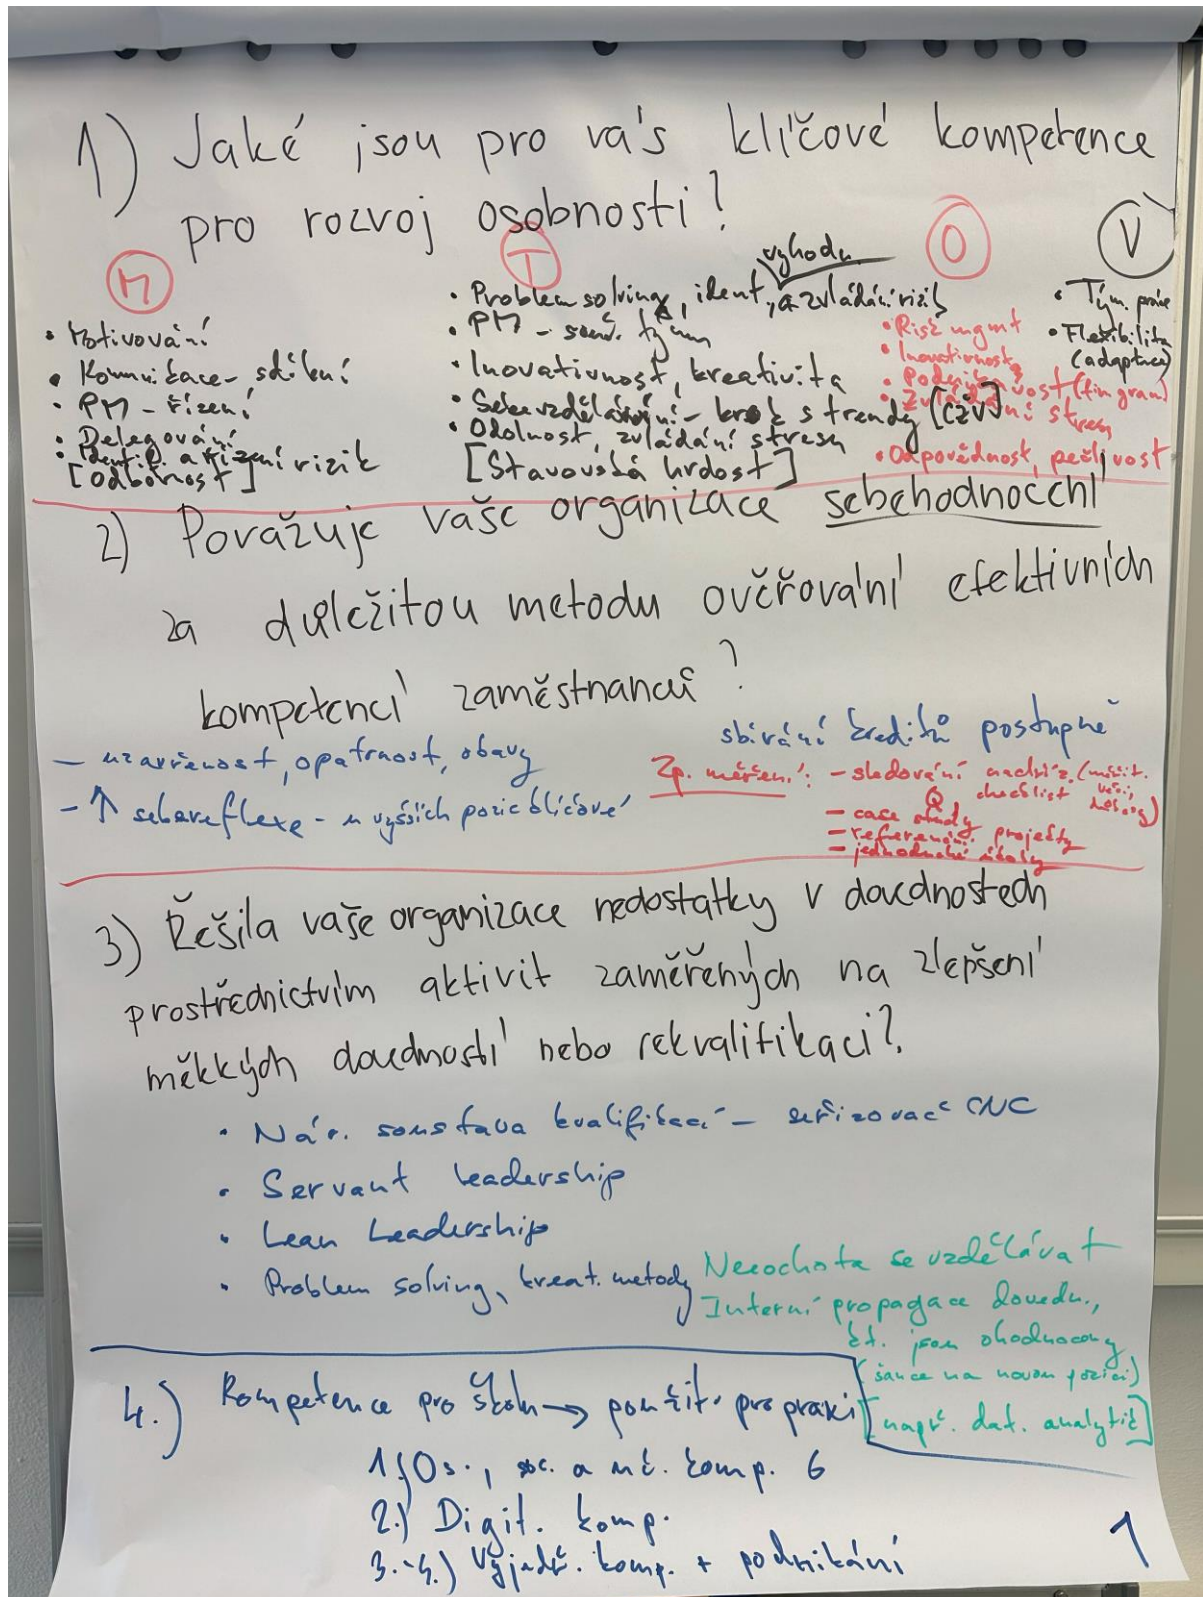 1) Jaké jsou pro vás klíčové kompetence
pro rozvoj osobnosti?
M
• Motivování
• Komunikace - sdílení
• PM - řízení
• Delegování
• Identif. a řízení rizik
[odbornost]
T
výhodu
• Problem solving, ident., a zvládání rizik
• PM - souč. týmu
• Inovativnost, kreativita
• Sebevzdělávání - krok s trendy [CŽV]
• Odolnost, zvládání stresu
[Stavovská hrdost]
O
• Risk mgmt
• Inovativnost
• Podnikavost (fin gram)
• Zvládání stresu
• Odpovědnost, pečlivost
V
• Tým. práce
• Flexibilita
(adaptace)
2) Považuje vaše organizace sebehodnocení
za důležitou metodu ověřování efektivních
kompetencí zaměstnanců?
- uzavřenost, opatrnost, obavy
- ↑ sebereflexe - u vyšších pozic klíčové
sbírání kreditů postupně
Zp. měření: - sledování
checklist
- case study
- referenční projekty
- jednoduché úkoly
3) Řešila vaše organizace nedostatky v dovednostech
prostřednictvím aktivit zaměřených na zlepšení
měkkých dovedností nebo rekvalifikaci?
• Nár. soustava kvalifikací - seřizovač CNC
• Servant leadership
• Lean Leadership
• Problem solving, kreat. metody
Neochota se vzdělávat
Interní propagace dovedn.,
kt. jsou ohodnoceny
(šance na novou pozici)
[např. dat. analytik]
4.) Kompetence pro školu → použit. pro praxi
1.) Os., soc. a uč. komp. 6
2.) Digit. komp.
3.-4.) Vyjadř. komp. + podnikání
1